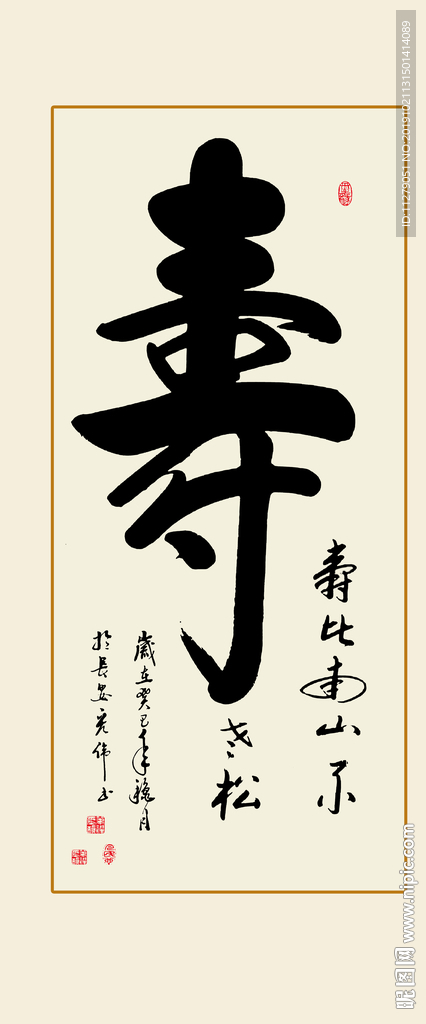 壽
壽比南山不
老松
歲在癸巳年穐月
於長安亮偉书
ID:11279051 NO:20191021131501414089
昵图网 www.nipic.com